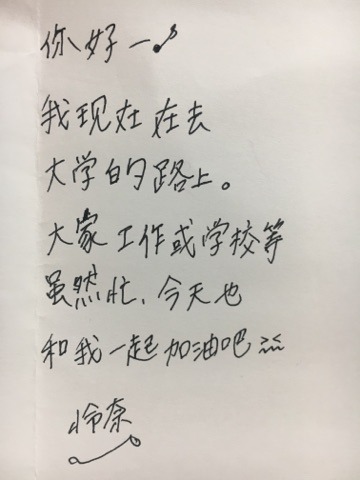 你好ー♪
我现在在去
大学的路上。
大家工作或学校等
虽然忙、今天也
和我一起加油吧
怜奈